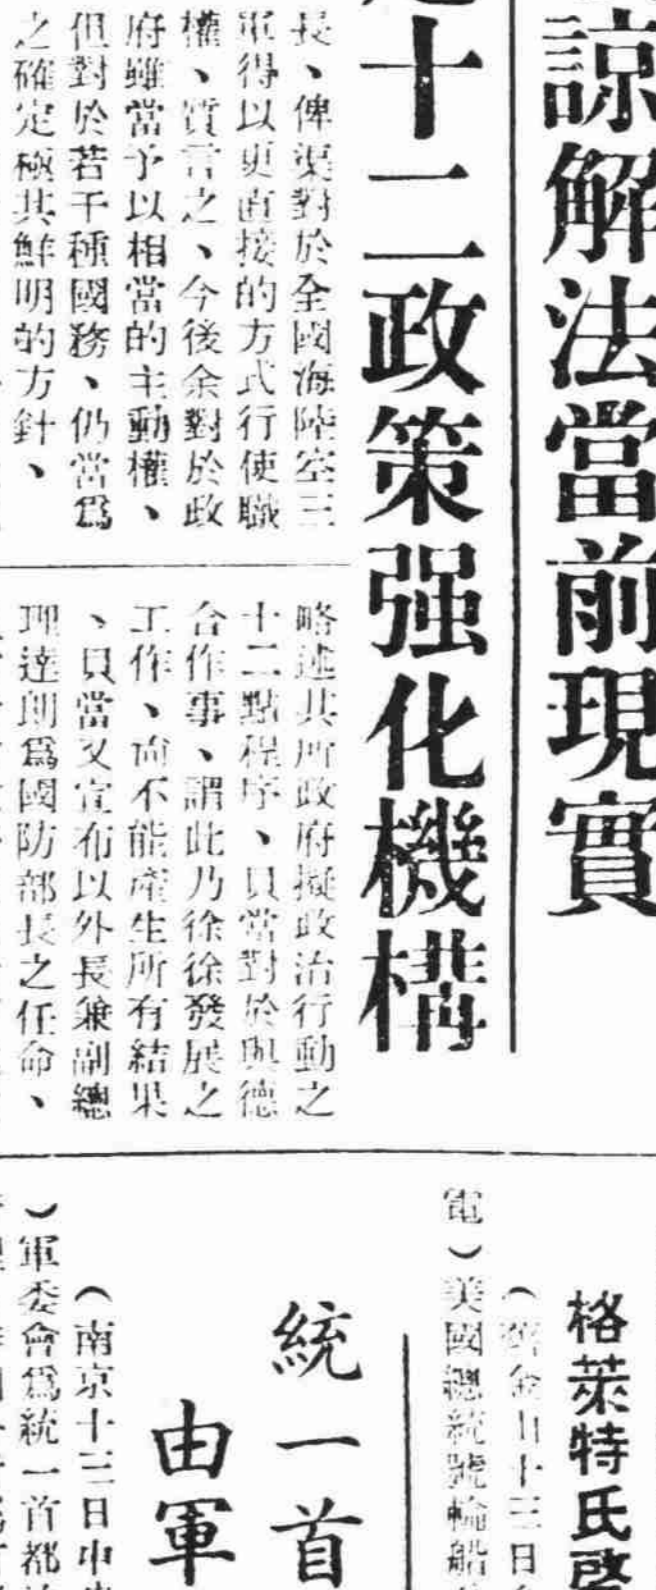 諒解法當前現實
十二政策强化機構
長、俾渠對於全國海陸空三
軍得以更直接的方式行使職
權、質言之、今後余對於政
府雖當予以相當的主動權、
但對於若干種國務、仍當爲
之確定極其鮮明的方針、
略述其所政府擬政治行動之
十二點程序、貝當對於與德
合作事、謂此乃徐徐發展之
工作、而不能產生所有結果
、貝當又宣布以外長兼副總
理達朗爲國防部長之任命、
格萊特氏啓
（舊金山十三日
電）美國總統號輪船
統一首
由軍
（南京十三日中
）軍委會爲統一首都